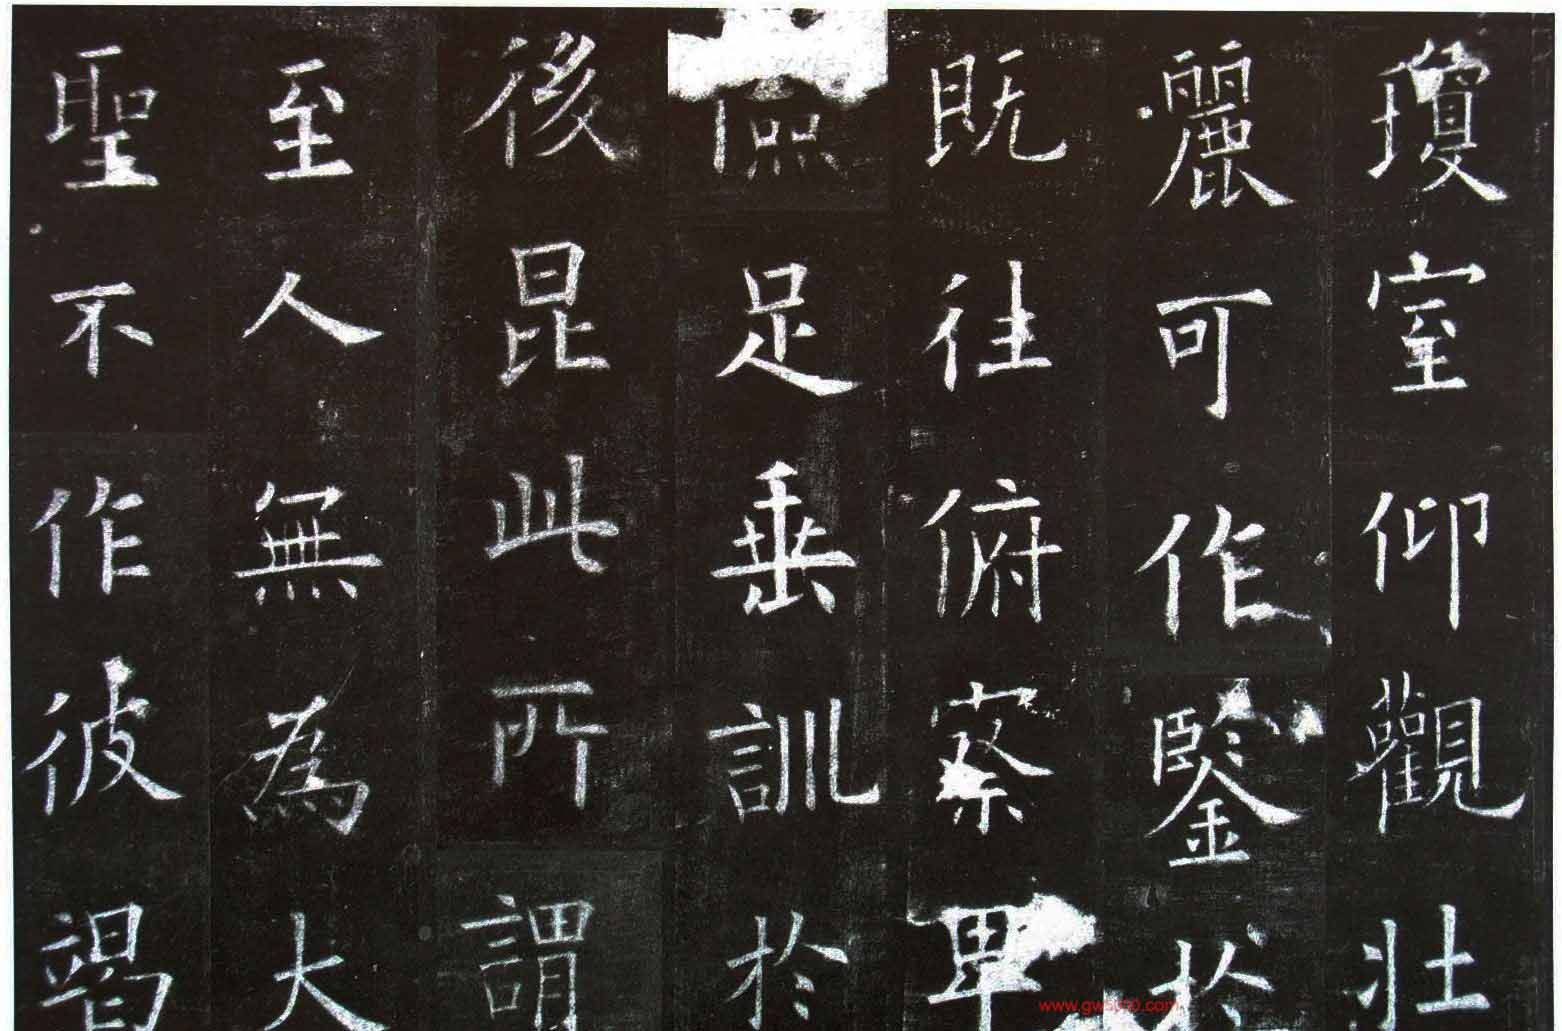 瓊室仰觀壯
麗可作鑒於
既往俯察卑
儉足垂訓於
後昆此所謂
至人無為大
聖不作彼竭
www.gw5000.com